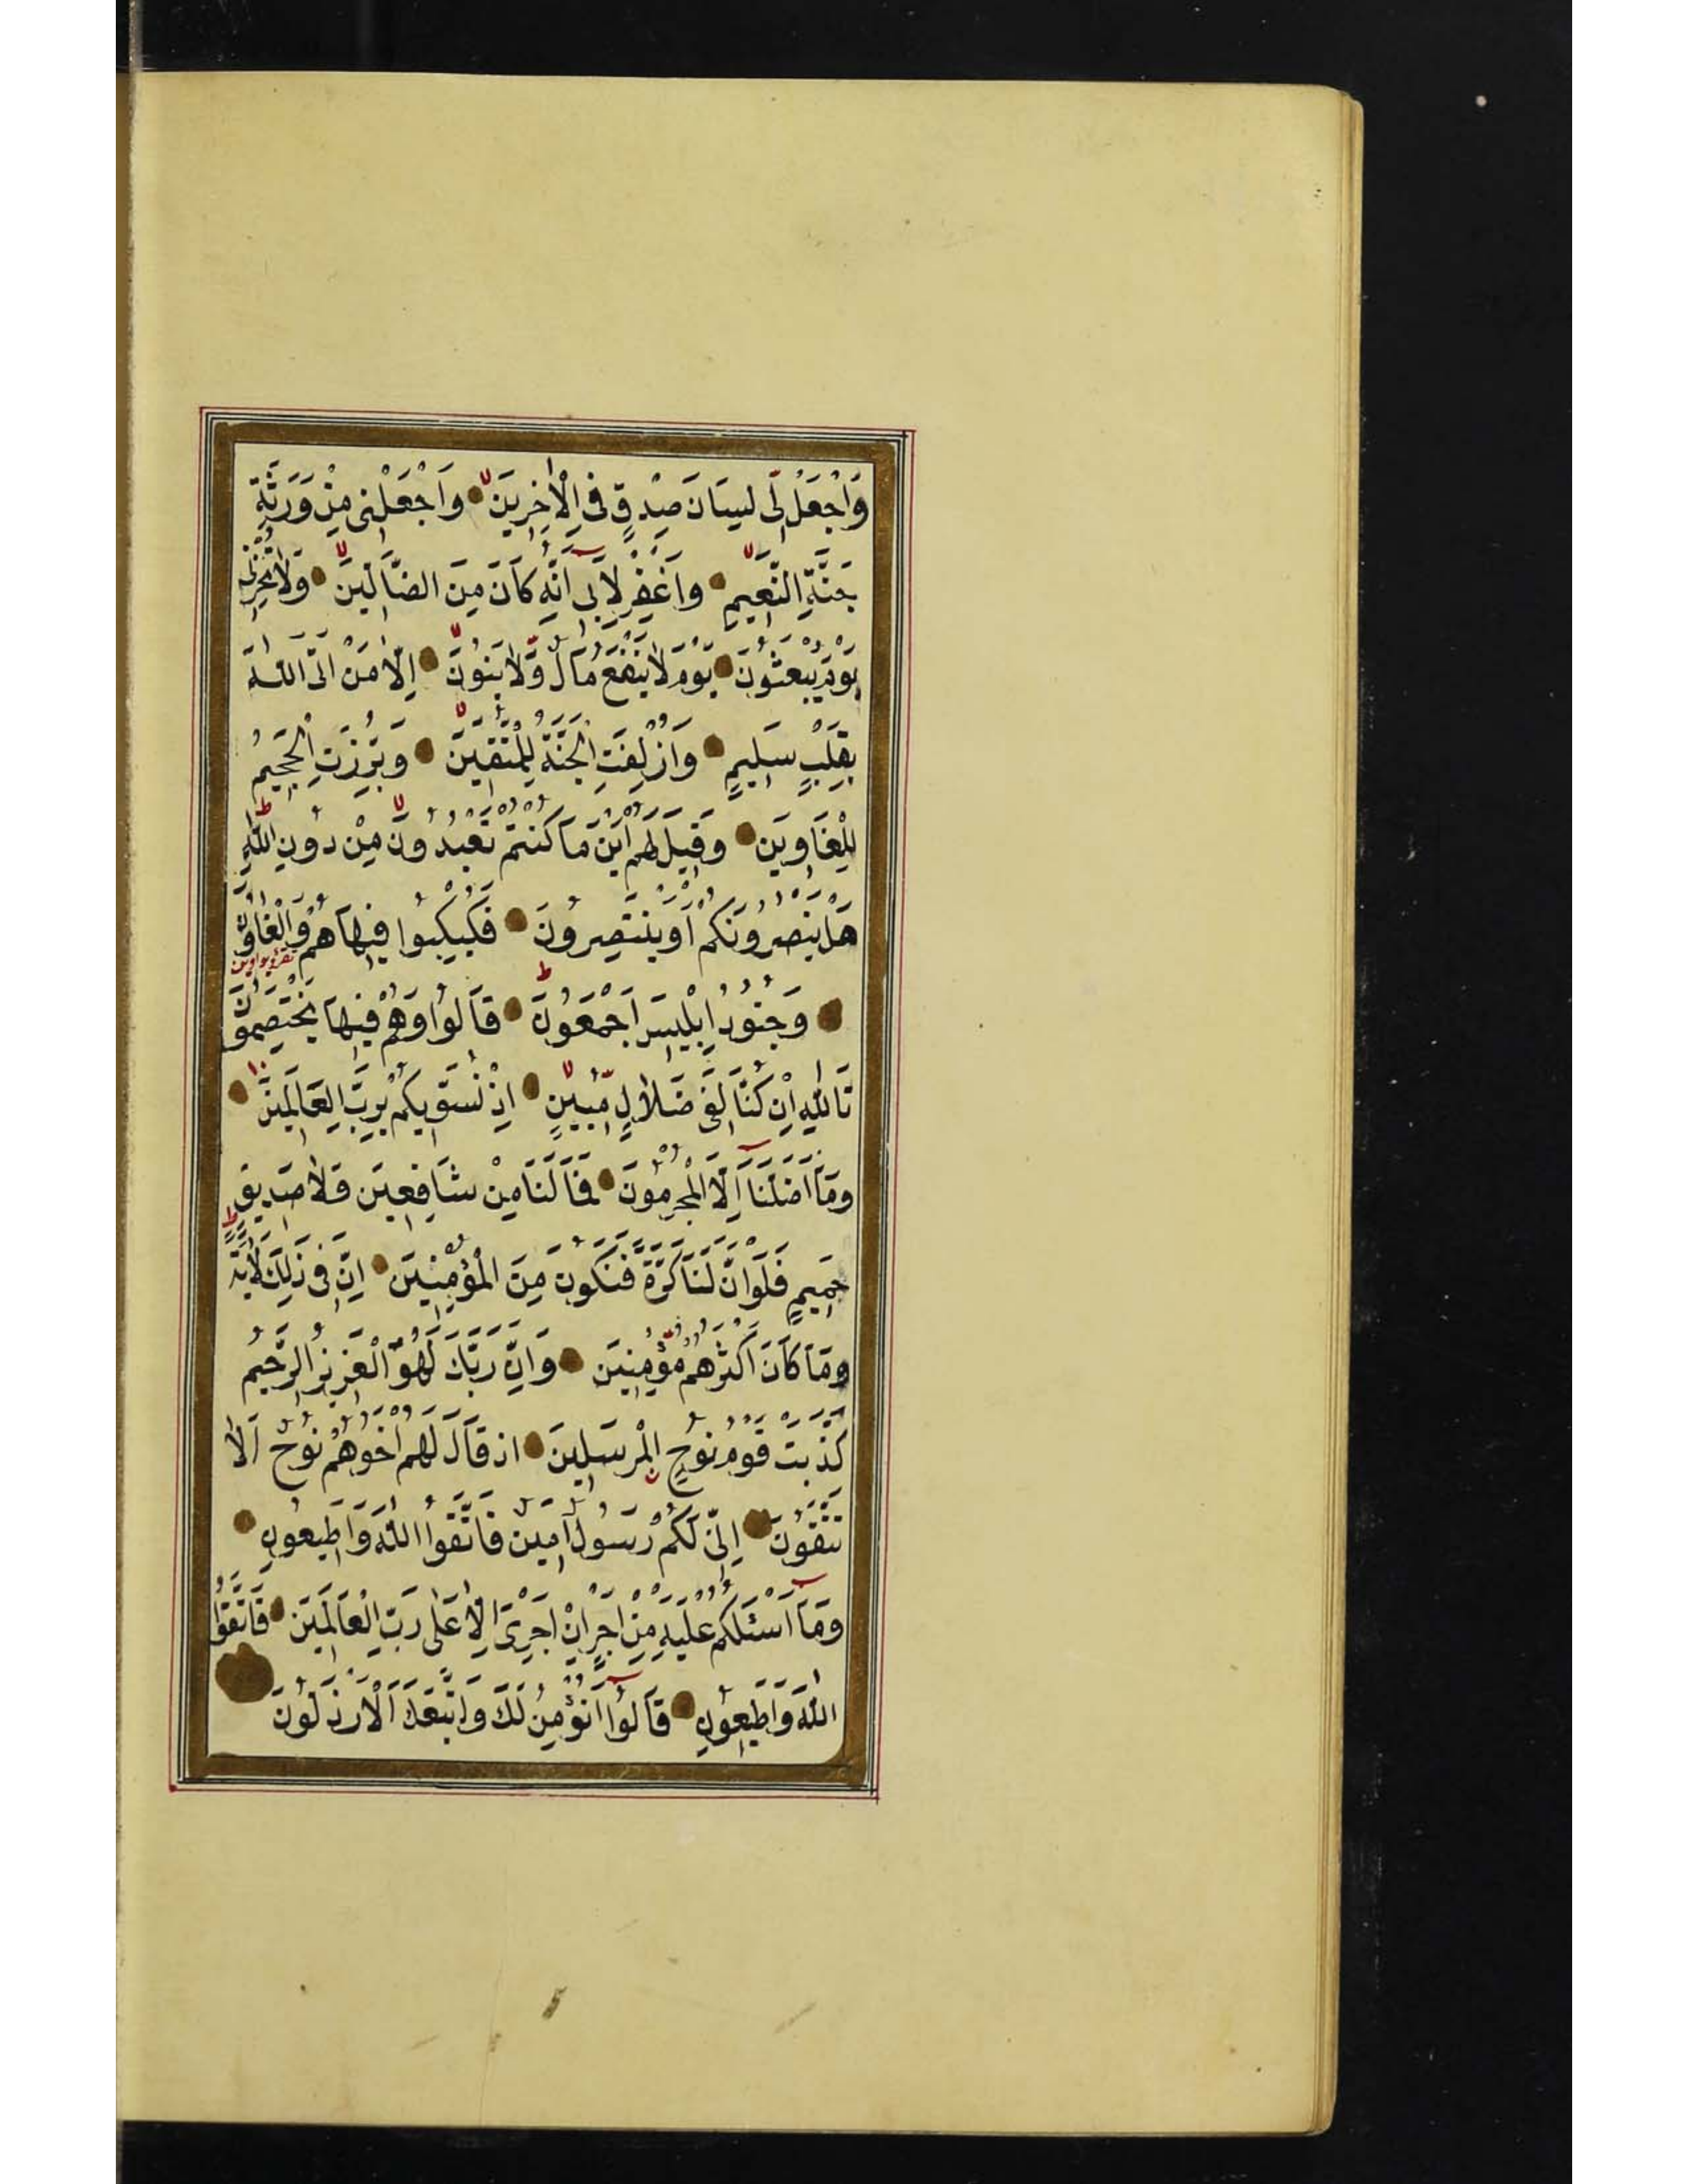 وَاجْعَلْ لِّى لِسَانَ صِدْقٍ فِى الْاٰخِرِينَ وَاجْعَلْنِى مِنْ وَرَثَةِ
جَنَّةِ النَّعِيمِ وَاغْفِرْ لِاَبِى اِنَّهُ كَانَ مِنَ الضَّالِّينَ وَلَا تُخْزِنِى
يَوْمَ يُبْعَثُونَ يَوْمَ لَا يَنْفَعُ مَالٌ وَّلَا بَنُونَ اِلَّا مَنْ اَتَى اللّٰهَ
بِقَلْبٍ سَلِيمٍ وَاُزْلِفَتِ الْجَنَّةُ لِلْمُتَّقِينَ وَبُرِّزَتِ الْجَحِيمُ
لِلْغَاوِينَ وَقِيلَ لَهُمْ اَيْنَ مَا كُنْتُمْ تَعْبُدُونَ مِنْ دُونِ اللّٰهِ ط
هَلْ يَنْصُرُونَكُمْ اَوْ يَنْتَصِرُونَ فَكُبْكِبُوا فِيهَا هُمْ وَالْغَاوُنَ
وَجُنُودُ اِبْلِيسَ اَجْمَعُونَ ط قَالُوا وَهُمْ فِيهَا يَخْتَصِمُونَ
تَاللّٰهِ اِنْ كُنَّا لَفِى ضَلَالٍ مُّبِينٍ اِذْ نُسَوِّيكُمْ بِرَبِّ الْعَالَمِينَ
وَمَا اَضَلَّنَا اِلَّا الْمُجْرِمُونَ فَمَا لَنَا مِنْ شَافِعِينَ وَلَا صَدِيقٍ
حَمِيمٍ فَلَوْ اَنَّ لَنَا كَرَّةً فَنَكُونَ مِنَ الْمُؤْمِنِينَ اِنَّ فِى ذٰلِكَ لَاٰيَةً ط
وَمَا كَانَ اَكْثَرُهُمْ مُّؤْمِنِينَ وَاِنَّ رَبَّكَ لَهُوَ الْعَزِيزُ الرَّحِيمُ
كَذَّبَتْ قَوْمُ نُوحٍ الْمُرْسَلِينَ اِذْ قَالَ لَهُمْ اَخُوهُمْ نُوحٌ اَلَا
تَتَّقُونَ اِنِّى لَكُمْ رَسُولٌ اَمِينٌ فَاتَّقُوا اللّٰهَ وَاَطِيعُونِ
وَمَا اَسْئَلُكُمْ عَلَيْهِ مِنْ اَجْرٍ اِنْ اَجْرِىَ اِلَّا عَلٰى رَبِّ الْعَالَمِينَ فَاتَّقُوا
اللّٰهَ وَاَطِيعُونِ قَالُوا اَنُؤْمِنُ لَكَ وَاتَّبَعَكَ الْاَرْذَلُونَ